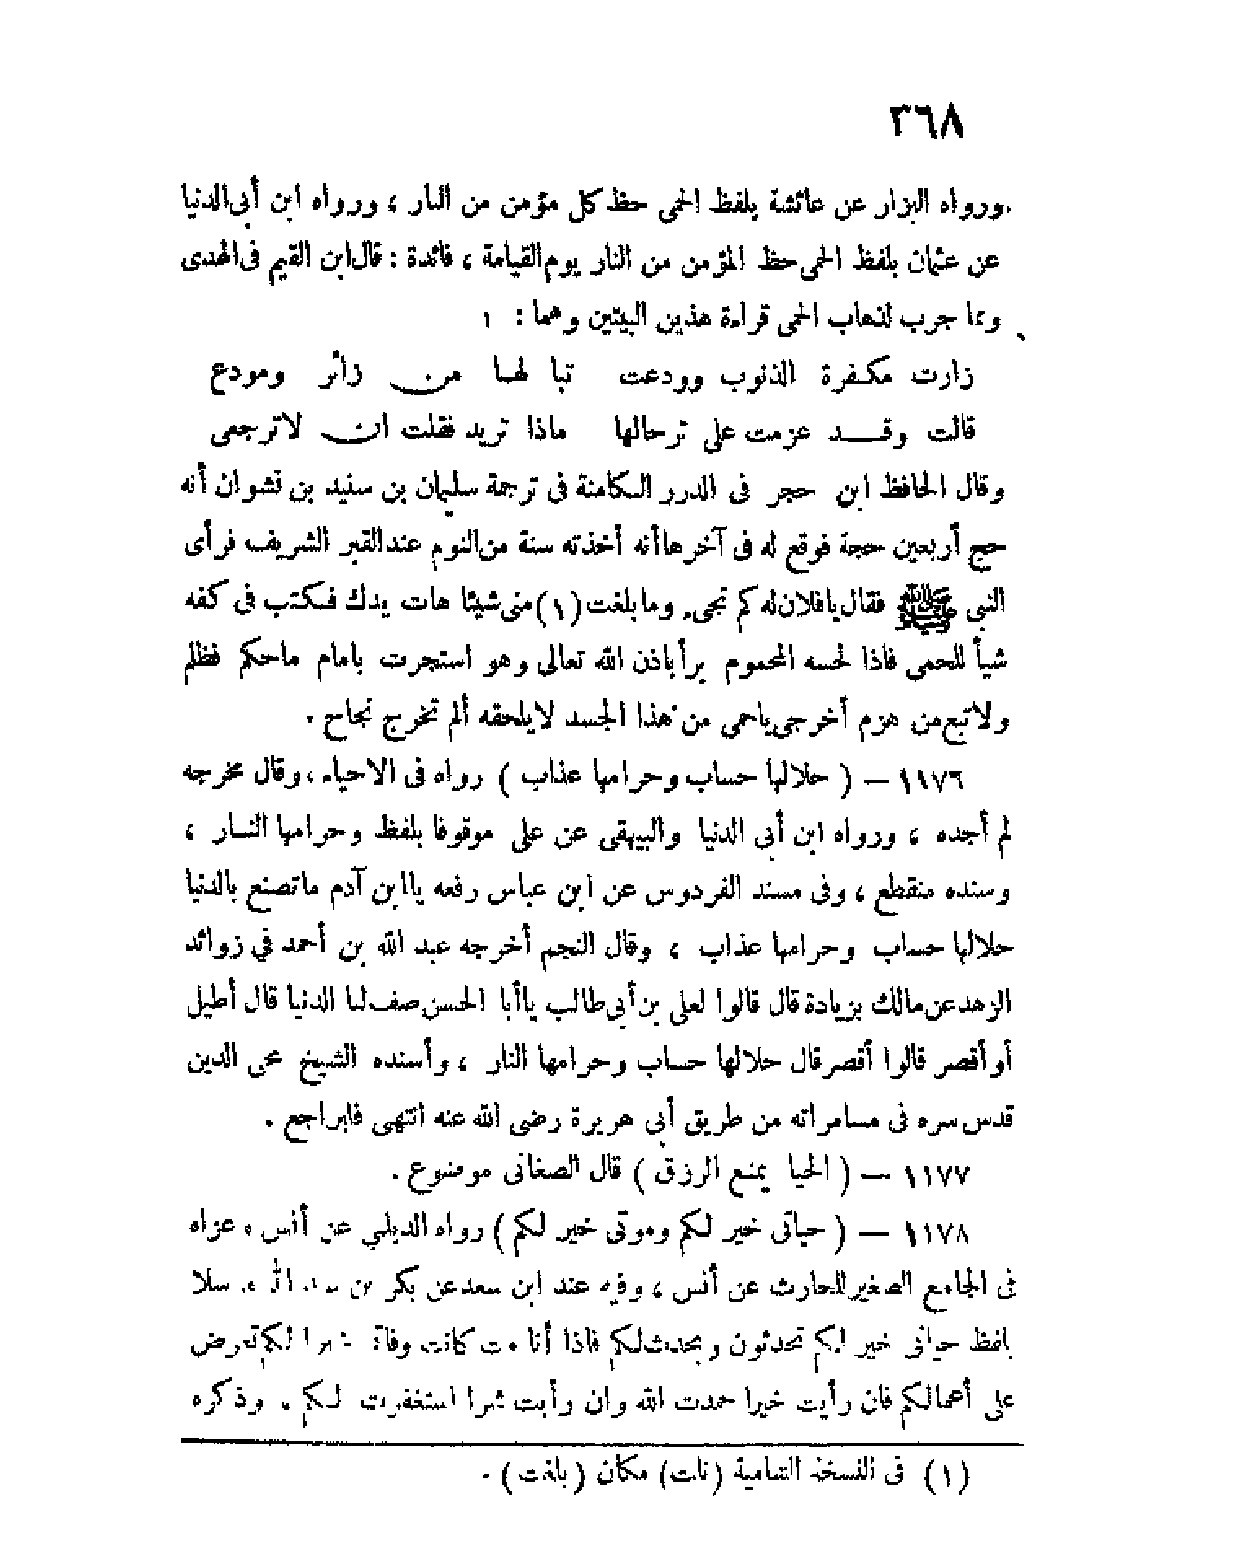 ٣٦٨
ورواه البزار عن عائشة بلفظ الحمى حظ كل مؤمن من النار ، ورواه ابن أبى الدنيا
عن عثمان بلفظ الحمى حظ المؤمن من النار يوم القيامة ، فائدة : قال ابن القيم فى الهدى
ومما جرب لذهاب الحمى قراءة هذين البيتين وهما :
زارت مكفرة الذنوب وودعت تبا لها من زائر ومودع
قالت وقد عزمت على ترحالها ماذا تريد فقلت ان لاترجعى
وقال الحافظ ابن حجر فى الدرر الكامنة فى ترجمة سليمان بن سنيد بن نشوان أنه
حج أربعين حجة فوقع له فى آخرها أنه أخذته سنة من النوم عند القبر الشريف فرأى
النبى ﷺ فقال يافلان له كم تجى. وما بلغت (١) منى شيئا هات يدك فكتب فى كفه
شيأ للحمى فاذا لحسه المحموم برأ باذن الله تعالى وهو استجرت بامام ماحكم فظلم
ولاتبع من هزم أخرجى ياحمى من هذا الجسد لايلحقه ألم تخرج نجاح .
١١٧٦ — ( حلالها حساب وحرامها عذاب ) رواه فى الاحياء ، وقال مخرجه
لم أجده ، ورواه ابن أبى الدنيا والبيهقى عن على موقوفا بلفظ وحرامها النار ،
وسنده منقطع ، وفى مسند الفردوس عن ابن عباس رفعه يا ابن آدم ماتصنع بالدنيا
حلالها حساب وحرامها عذاب ، وقال النجم أخرجه عبد الله بن أحمد في زوائد
الزهد عن مالك بزيادة قال قالوا لعلى بن أبى طالب ياأبا الحسن صف لنا الدنيا قال أطيل
أو أقصر قالوا أقصر قال حلالها حساب وحرامها النار ، وأسنده الشيخ محى الدين
قدس سره فى مسامراته من طريق أبى هريرة رضى الله عنه انتهى فليراجع .
١١٧٧ — ( الحيا يمنع الرزق ) قال الصغانى موضوع .
١١٧٨ — ( حياتى خير لكم وموتى خير لكم ) رواه الديلمي عن أنس ، عزاه
فى الجامع الصغير للحارث عن أنس ، وفيه عند ابن سعد عن بكر بن
بلفظ حياتى خير لكم تحدثون ويحدث لكم فاذا أنا مت كانت وفاتى خيرا لكم تعرض
على أعمالكم فان رأيت خيرا حمدت الله وان رأيت شرا استغفرت لكم . وذكره
(١) فى النسخة الشامية (نلت) مكان (بلغت) .